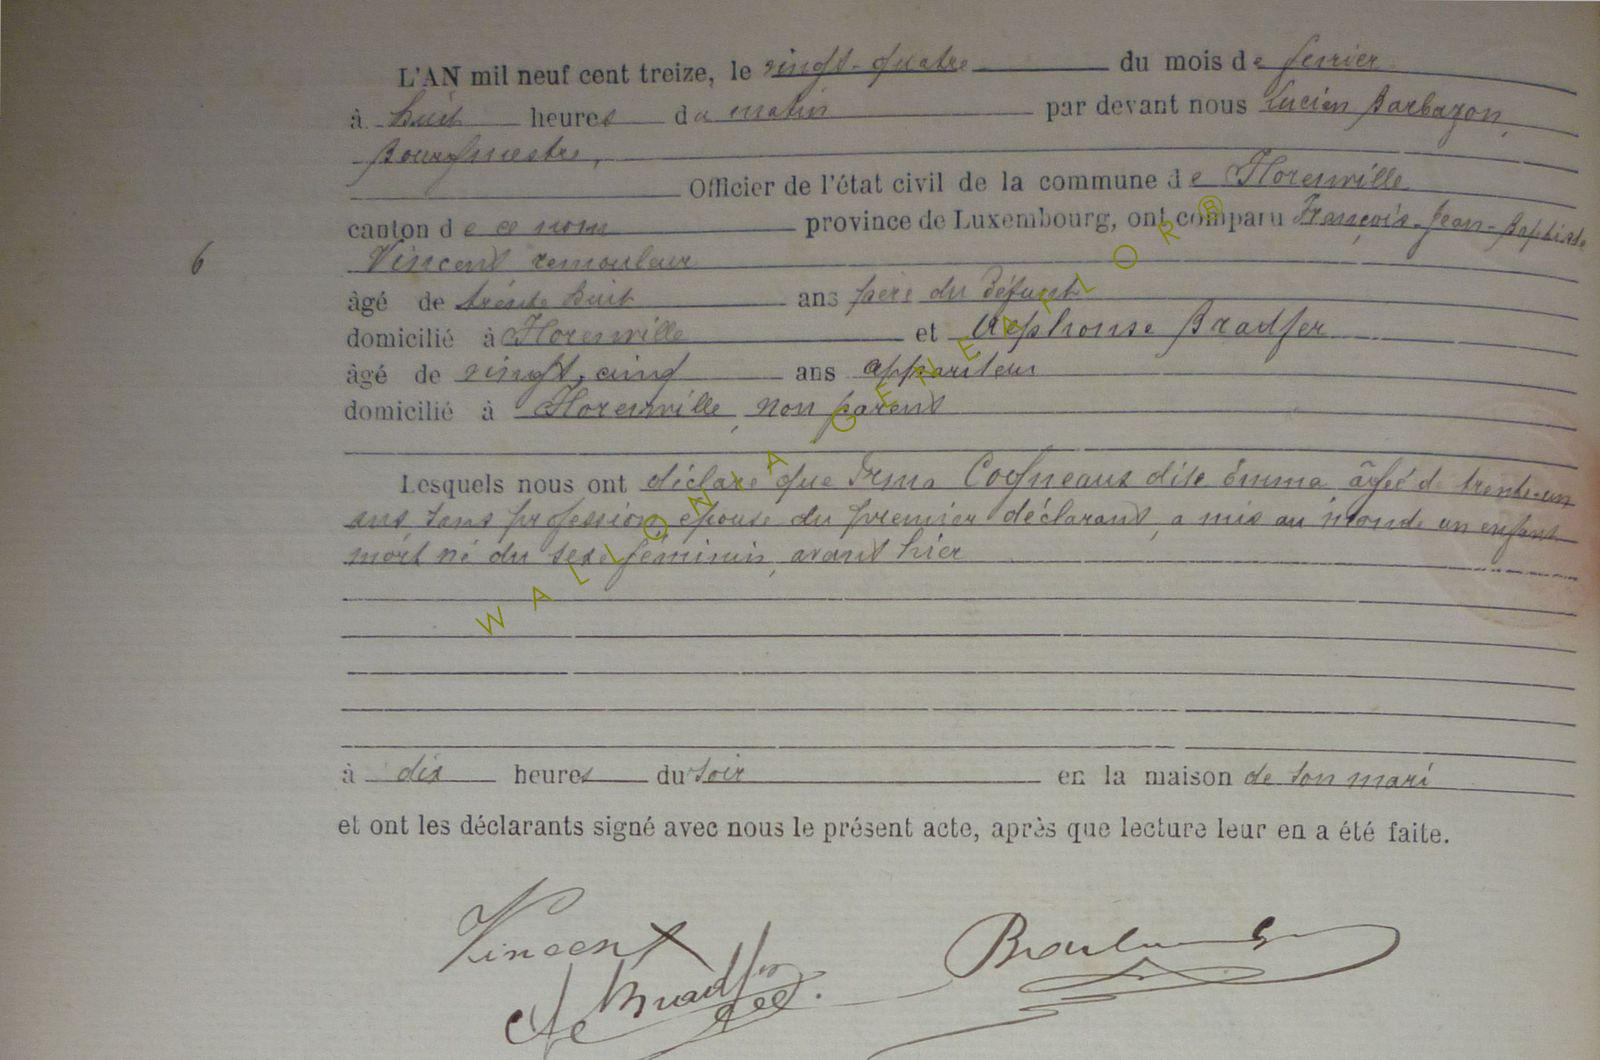 L'AN mil neuf cent treize, le vingt-quatre du mois de fevrier
à huit heures du matin par devant nous Lucien Barbazon,
Bourgmestre,
Officier de l'état civil de la commune de Florenville
canton de ce nom province de Luxembourg, ont comparu François-Jean-Baptiste
6 Vincent remouleur
âgé de trente huit ans père du défunt
domicilié à Florenville et Alphonse Bradfer
âgé de vingt-cinq ans appariteur
domicilié à Florenville, non parent
Lesquels nous ont déclaré que Irma Cogneaux dite Emma âgée de trente-un
ans, sans profession, épouse du premier déclarant, a mis au monde un enfant
mort né du sexe féminin, avant hier
à dix heures du soir en la maison de son mari
et ont les déclarants signé avec nous le présent acte, après que lecture leur en a été faite.
Vincent
WALLONIA GENEAFLOR®